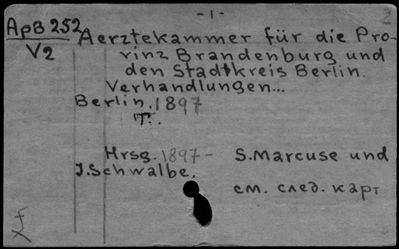 - 1 -
ApB 252 Aerztekammer für die Pro-
V2 vinz Brandenburg und
den Stadtkreis Berlin.
Verhandlungen...
Berlin. 1897
T.
Hrsg. 1897 - S. Marcuse und
J. Schwalbe.
см. след. карт